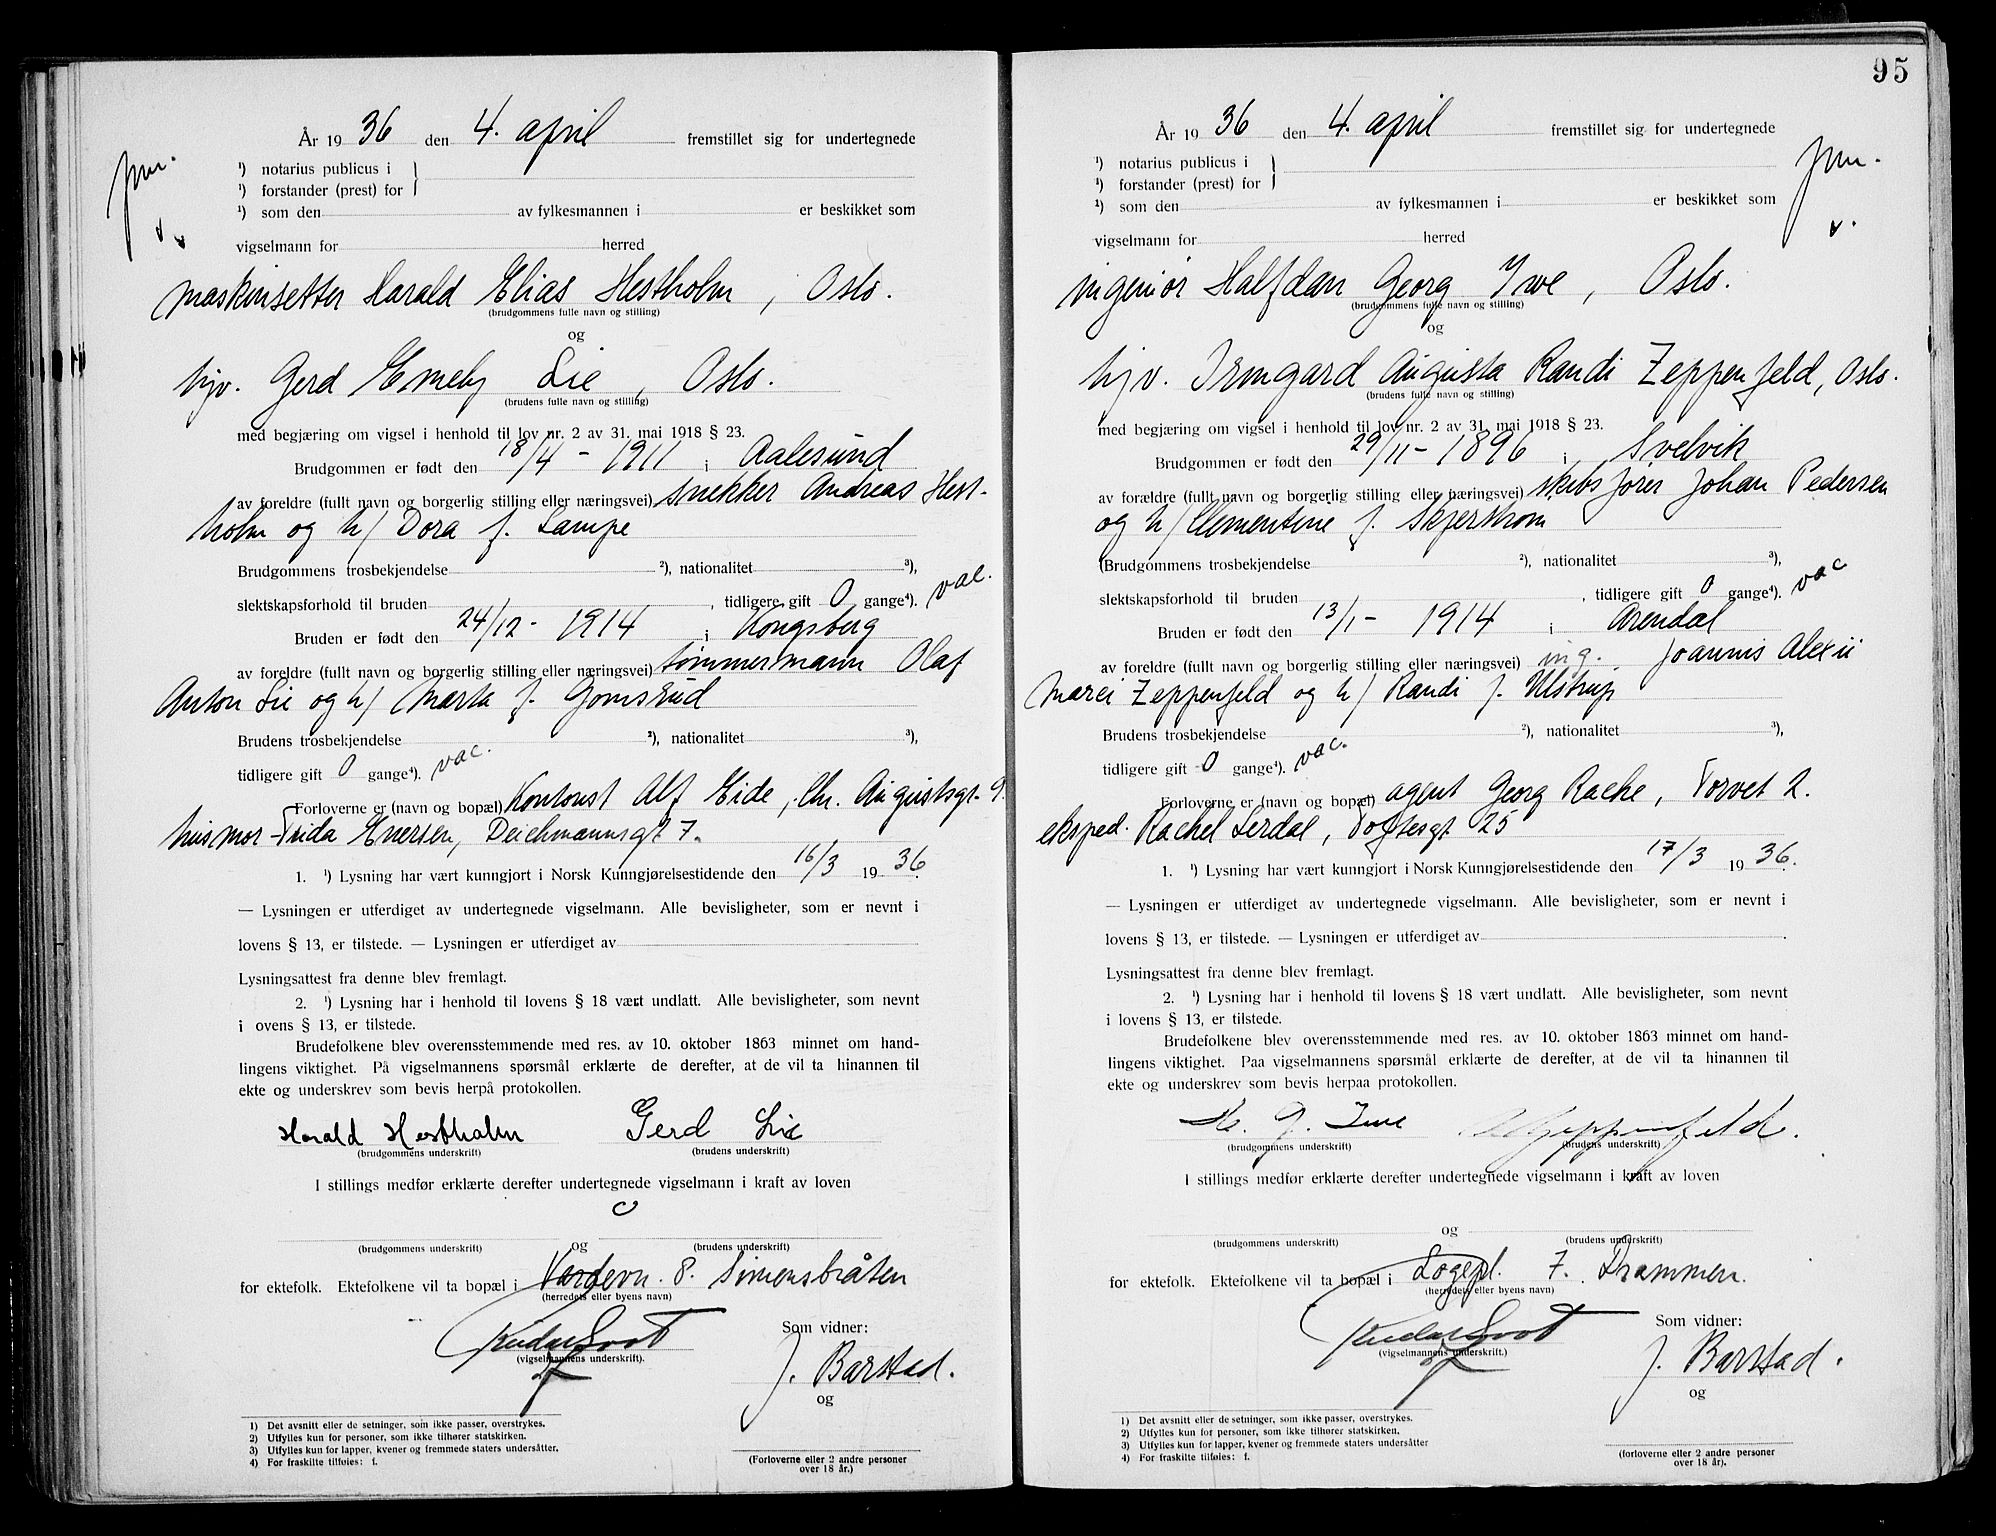 År 19 36 den 4. april fremstillet sig for undertegnede
jnr.
¹) notarius publicus i
¹) forstander (prest) for
¹) som den av fylkesmannen i er beskikket som
vigselmann for herred
maskinsetter Harald Elias Hestholm, Oslo.
(brudgommens fulle navn og stilling)
og
hjv. Gerd Emely Lie, Oslo.
(brudens fulle navn og stilling)
med begjæring om vigsel i henhold til lov nr. 2 av 31. mai 1918 § 23.
Brudgommen er født den 18/4 - 1911 i Aalesund
av foreldre (fullt navn og borgerlig stilling eller næringsvei) snekker Andreas Hest-
holm og h/ Dora f. Lampe
Brudgommens trosbekjendelse ²), nationalitet ³),
slektskapsforhold til bruden , tidligere gift 0 gange⁴). vac.
Bruden er født den 24/12 - 1914 i Kongsberg
av foreldre (fullt navn og borgerlig stilling eller næringsvei) tømmermann Olaf
Anton Lie og h/ Marta f. Gomsrud
Brudens trosbekjendelse ²), nationalitet ³),
tidligere gift 0 gange⁴). vac.
Forloverne er (navn og bopæl) Kontorist Alf Eide, Chr. Augustsgt. 9.
husmor Frida Eversen, Deichmannsgt 7.
1. ¹) Lysning har vært kunngjort i Norsk Kunngjørelsestidende den 16/3 19 36.
— Lysningen er utferdiget av undertegnede vigselmann. Alle bevisligheter, som er nevnt i
lovens § 13, er tilstede. — Lysningen er utferdiget av
Lysningsattest fra denne blev fremlagt.
2. ¹) Lysning har i henhold til lovens § 18 vært undlatt. Alle bevisligheter, som nevnt
i ovens § 13, er tilstede.
Brudefolkene blev overensstemmende med res. av 10. oktober 1863 minnet om hand-
lingens viktighet. På vigselmannens spørsmål erklærte de derefter, at de vil ta hinannen til
ekte og underskrev som bevis herpå protokollen.
Harald Hestholm Gerd Lie
(brudgommens underskrift) (brudens underskrift)
I stillings medfør erklærte derefter undertegnede vigselmann i kraft av loven
og
(brudgommens underskrift) (brudens underskrift)
for ektefolk. Ektefolkene vil ta bopæl i Vardevn. 8. Simensbråten
(herredets eller byens navn)
Som vidner:
(vigselmannens underskrift).
J. Barstad.
og
1) Det avsnitt eller de setninger, som ikke passer, overstrykes.
2) Utfylles kun for personer, som ikke tilhører statskirken.
3) Utfylles kun for lapper, kvener og fremmede staters undersåtter.
4) For fraskilte tilføies: f.
(Forloverne eller 2 andre personer
over 18 år.)
95
År 19 36 den 4. april fremstillet sig for undertegnede
jnr.
¹) notarius publicus i
¹) forstander (prest) for
¹) som den av fylkesmannen i er beskikket som
vigselmann for herred
ingeniør Halfdan Georg Iwe, Oslo.
(brudgommens fulle navn og stilling)
og
hjv. Irmgard Augusta Randi Zeppenfeld, Oslo.
(brudens fulle navn og stilling)
med begjæring om vigsel i henhold til lov nr. 2 av 31. mai 1918 § 23.
Brudgommen er født den 29/11 - 1896 i Svelvik
av forældre (fullt navn og borgerlig stilling eller næringsvei) skibsfører Johan Pedersen
og h/ Clementine f. Skjerstrøm
Brudgommens trosbekjendelse ²), nationalitet ³),
slektskapsforhold til bruden , tidligere gift 0 gange⁴). vac
Bruden er født den 13/1 - 1914 i Arendal
av foreldre (fullt navn og borgerlig stilling eller næringsvei) ing. Joannis Alexii
Marei Zeppenfeld og h/ Randi f. Ulstrup
Brudens trosbekjendelse ²), nationalitet ³),
tidligere gift 0 gange⁴). vac.
Forloverne er (navn og bopæl) agent Georg Rache, Torvet 2.
eksped. Rachel Lerdal, Toftesgt 25
1. ¹) Lysning har vært kunngjort i Norsk Kunngjørelsestidende den 17/3 19 36.
— Lysningen er utferdiget av undertegnede vigselmann. Alle bevisligheter, som er nevnt i
lovens § 13, er tilstede. — Lysningen er utferdiget av
Lysningsattest fra denne blev fremlagt.
2. ¹) Lysning har i henhold til lovens § 18 vært undlatt. Alle bevisligheter, som nevnt
i lovens § 13, er tilstede.
Brudefolkene blev overensstemmende med res. av 10. oktober 1863 minnet om hand-
lingens viktighet. Paa vigselmannens spørsmål erklærte de derefter, at de vil ta hinannen til
ekte og underskrev som bevis herpaa protokollen.
H. G. Iwe Zeppenfeld.
(brudgommens underskrift) (brudens underskrift)
I stillings medfør erklærte derefter undertegnede vigselmann i kraft av loven
og
(brudgommens underskrift) (brudens underskrift)
for ektefolk. Ektefolkene vil ta bopæl i Logepl. 7. Drammen.
(herredets eller byens navn)
Som vidner:
(vigselmannens underskrift.)
J. Barstad.
og
1) Det avsnitt eller de setninger, som ikke passer, overstrykes.
2) Utfylles kun for personer, som ikke tilhører statskirken.
3) Utfylles kun for lapper, kvener og fremmede staters undersåtter
4) For fraskilte tilføies: f.
(forloverne eller 2 andre personer
over 18 år).